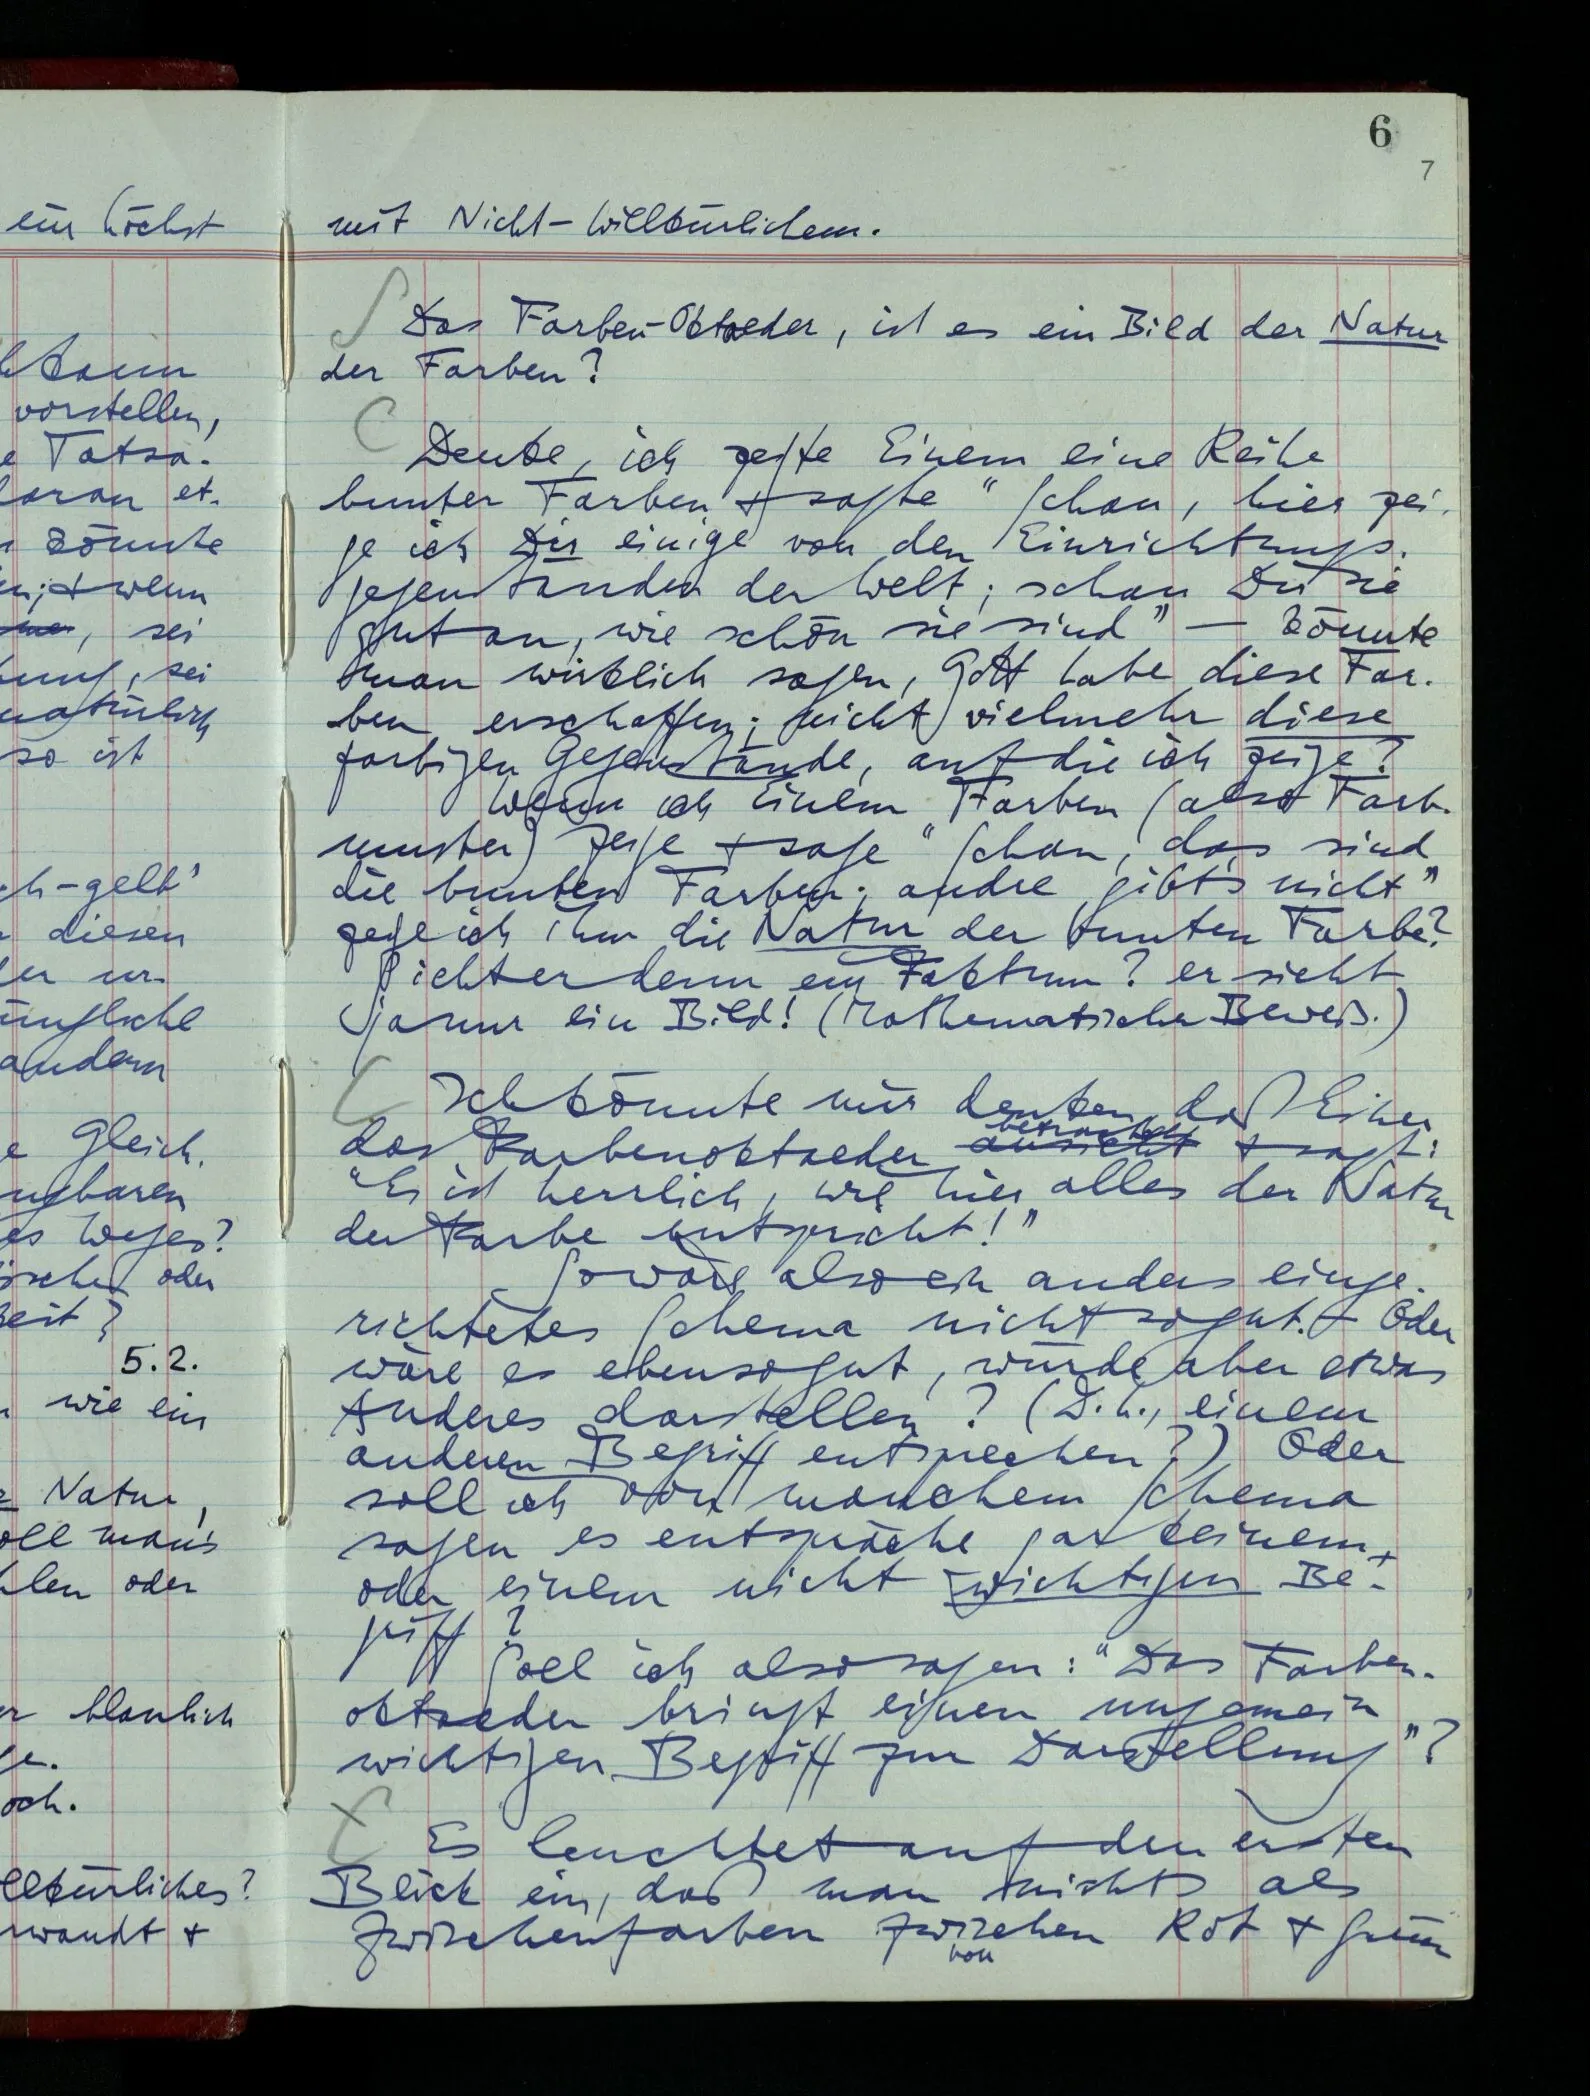 6
7
ein höchst
vorstellen,
Tatsa-
daran et-
könnte
& wenn
sei
sei
natürlich
so ist
ch-gelb'
diesen
er ur-
andern
Gleich-
es Weges?
oder
5.2.
wie ein
Natur,
man's
len oder
blaulich
och.
willkürliches?
wandt &
mit Nicht-Willkürlichem.
Das Farben-Oktaeder, ist es ein Bild der Natur
der Farben?
Denke, ich zeigte Einem eine Reihe
bunter Farben & sagte "Schau, hier zei-
ge ich Dir einige von den Einrichtungs-
gegenständen der Welt; schau Du sie
gut an, wie schön sie sind" — Könnte
man wirklich sagen, Gott habe diese Far-
ben erschaffen; nicht vielmehr diese
farbigen Gegenstände, auf die ich zeige?
Wenn ich Einem Farben (also Farb-
muster) zeige & sage "Schau, das sind
die bunten Farben; andre gibt's nicht"
zeige ich ihm die Natur der bunten Farbe?
Sieht er denn ein Faktum? er sieht
ja nur ein Bild! (Mathematischer Beweis.)
Ich könnte mir denken, daß Einer
das Farbenoktaeder ansieht betrachtet & sagt:
"Es ist herrlich, wie hier alles der Natur
der Farbe entspricht!"
So wäre also ein anders einge-
richtetes Schema nicht so gut. – Oder
wäre es ebensogut, würde aber etwas
Anderes darstellen? (D.h., einem
anderen Begriff entsprechen?) Oder
soll ich von manchem Schema
sagen es entspräche gar keinem,
oder einem nicht wichtigen Be-
griff?
Soll ich also sagen: "Das Farben-
oktaeder bringt einen ungemein
wichtigen Begriff zur Darstellung"?
Es leuchtet auf den ersten
Blick ein, daß man nichts als
Zwischenfarben zwischen Rot & Grün
von